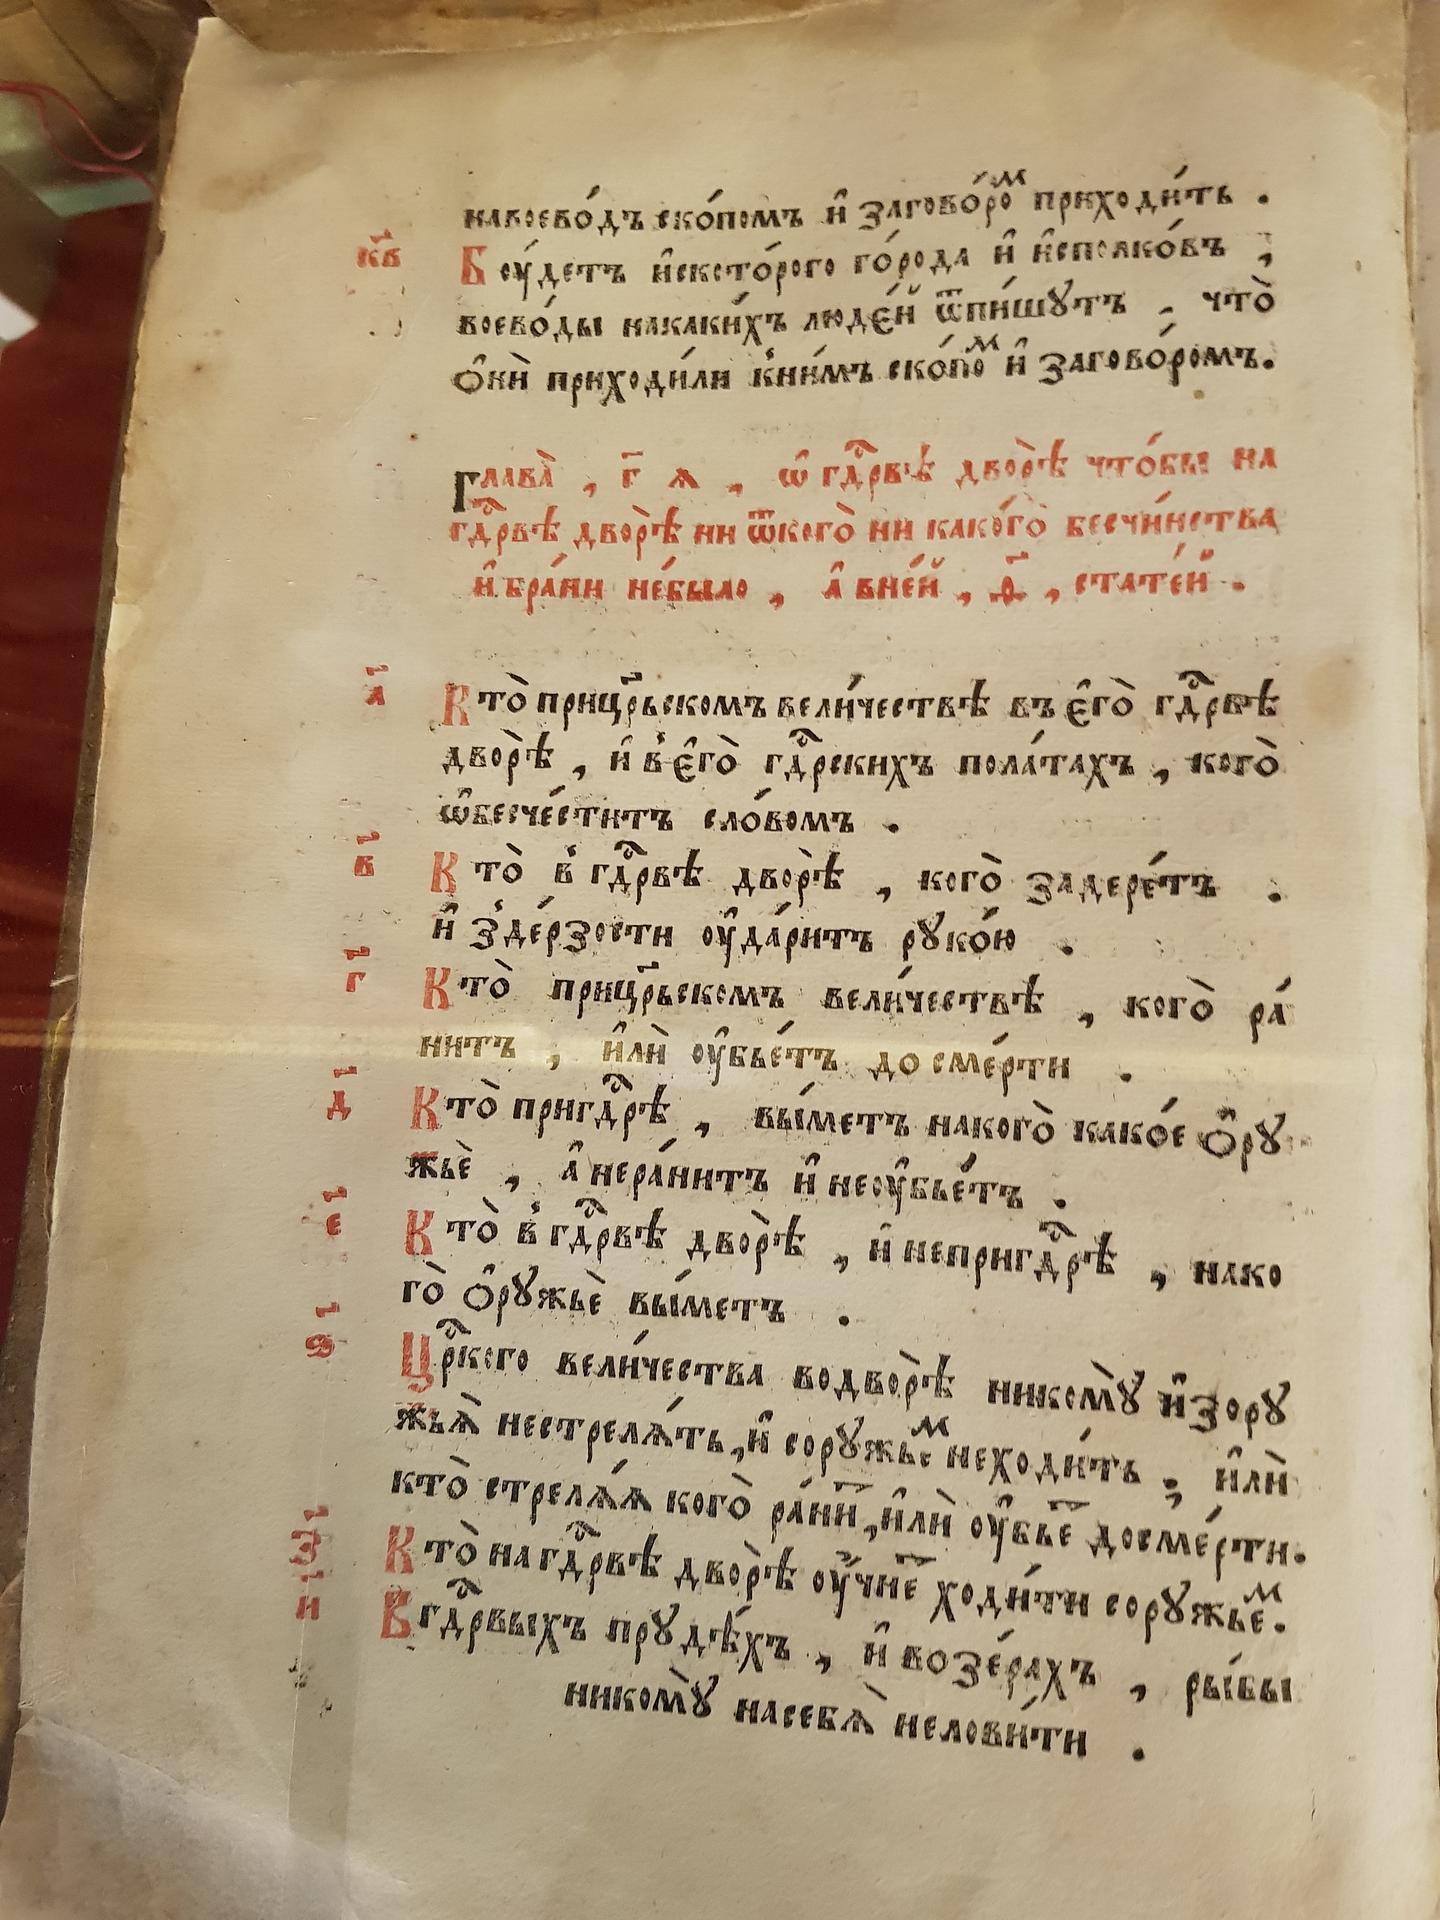 навоево́дъ ско́помъ и҆ загово́роⷨ приходи́ть .
к҃в Бꙋ́детъ и҆ското́рого го́рода и҆ и҆сполко́въ ,
воево́ды накаки́хъ люде́й ѿпи́шꙋтъ , что̀
ѻ҆нѝ приходи́ли кни́мъ ско́поⷨ и҆ загово́ромъ.
Глава̀ , г҃ ѧ , ѡ҆ гдⷭ҇рвѣ дворѣ̀ что́бы на
гдⷭ҇рвѣ дворѣ̀ ни ѿкого̀ ни како́го̀ бесчи́нства
и҆ бра́ни не́было , а҆ вне́й , ѳ҃ , стате́й .
а҃ Кто̀ прицр҃ьскомъ вели́чествѣ въ є҆го̀ гдⷭ҇рвѣ
дворѣ̀ , и҆ в є҆го̀ гдⷭ҇рскихъ пола́тахъ , кого̀
ѡ҆бесче́ститъ сло́вомъ .
в҃ Кто̀ в гдⷭ҇рвѣ дворѣ̀ , кого̀ задере́тъ .
и҆ зде́рзости ᲂу҆да́ритъ рꙋко́ю .
г҃ Кто̀ прицр҃ьскомъ вели́чествѣ , кого̀ ра́
нитъ , и҆лѝ ᲂу҆бье́тъ до сме́рти .
д҃ Кто̀ пригдⷭ҇рѣ , вы́метъ накого̀ како́е ѻ҆рꙋ
жьѐ , а҆ нера́нитъ и҆ неᲂу҆бье́тъ .
е҃ Кто̀ в гдⷭ҇рвѣ дворѣ̀ , и҆ непригдⷭ҇рѣ , нако
го̀ ѻ҆рꙋжьѐ вы́метъ .
ѕ҃ Црⷭ҇кого вели́чества водворѣ̀ никомꙋ̀ и҆зорꙋ
жьѧ̀ нестрелѧ́ть , и҆ сорꙋжьеⷨ неходи́ть , и҆лѝ
кто̀ стрелѧ́ѧ кого̀ ра́ниⷮ , и҆лѝ ᲂу҆бьеⷮ досме́рти .
з҃ Кто̀ на гдⷭ҇рвѣ дворѣ̀ ᲂу҆чнеⷮ ходи́ти сорꙋжьеⷨ .
и҃ В гдⷭ҇рвыхъ прꙋдѣ́хъ , и҆ возе́рахъ , ры́бы
никомꙋ̀ насебѧ̀ нелови́ти .